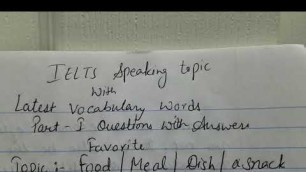 IELTS Speaking topic
With
Latest Vocabulary Words
Part-I Questions with Answers
Favorite
Topic :- Food / Meal / Dish / a snack